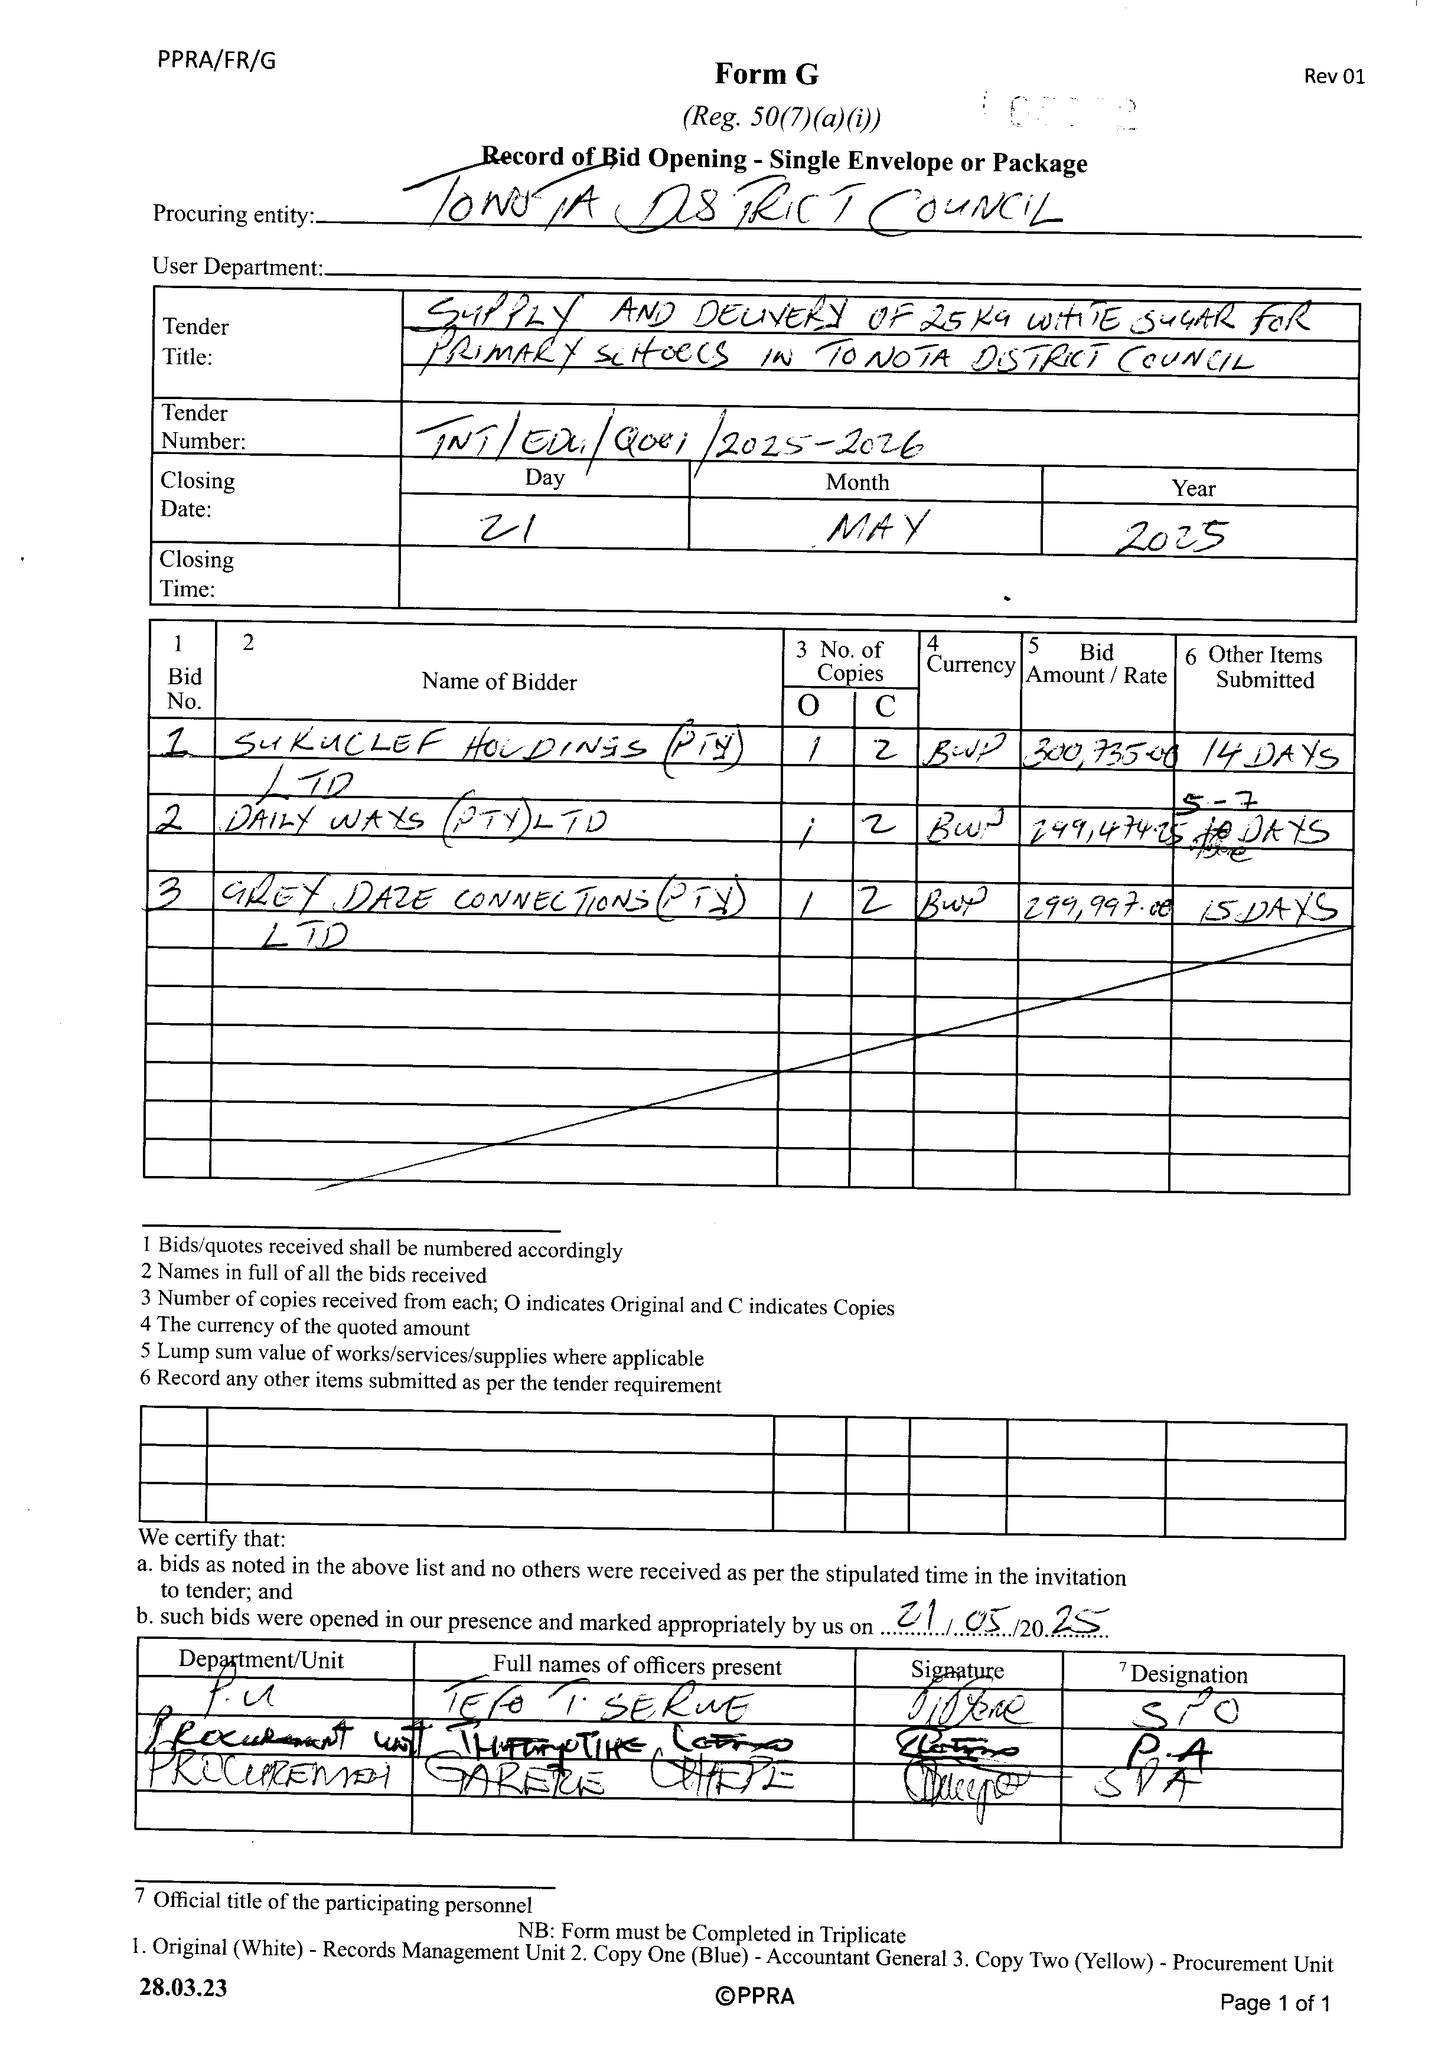 PPRA/FR/G
Form G
Rev 01
(Reg. 50(7)(a)(i))
Record of Bid Opening - Single Envelope or Package
Procuring entity: TONOTA DISTRICT COUNCIL
User Department:
Tender Title: SUPPLY AND DELIVERY OF 25KG WHITE SUGAR FOR
PRIMARY SCHOOLS IN TONOTA DISTRICT COUNCIL
Tender Number: TNT/EDU/Q001/2025-2026
Closing Date: Day Month Year
21 MAY 2025
Closing Time:
1 Bid No. 2 Name of Bidder 3 No. of Copies O C 4 Currency 5 Bid Amount / Rate 6 Other Items Submitted
1 SUKUCLEF HOLDINGS (PTY) 1 2 BWP 300,735.00 14 DAYS
LTD
5-7
2 DAILY WAYS (PTY) LTD 1 2 BWP 299,474.25 DAYS
3 GREY DAZE CONNECTIONS (PTY) 1 2 BWP 299,997.00 15 DAYS
LTD
1 Bids/quotes received shall be numbered accordingly
2 Names in full of all the bids received
3 Number of copies received from each; O indicates Original and C indicates Copies
4 The currency of the quoted amount
5 Lump sum value of works/services/supplies where applicable
6 Record any other items submitted as per the tender requirement
We certify that:
a. bids as noted in the above list and no others were received as per the stipulated time in the invitation
to tender; and
b. such bids were opened in our presence and marked appropriately by us on 21/05/2025
Department/Unit Full names of officers present Signature 7 Designation
P.U TEFO T. SERWE SPO
PROCUREMENT UNIT P.A
PROCUREMENT SPA
7 Official title of the participating personnel
NB: Form must be Completed in Triplicate
1. Original (White) - Records Management Unit 2. Copy One (Blue) - Accountant General 3. Copy Two (Yellow) - Procurement Unit
28.03.23
©PPRA
Page 1 of 1